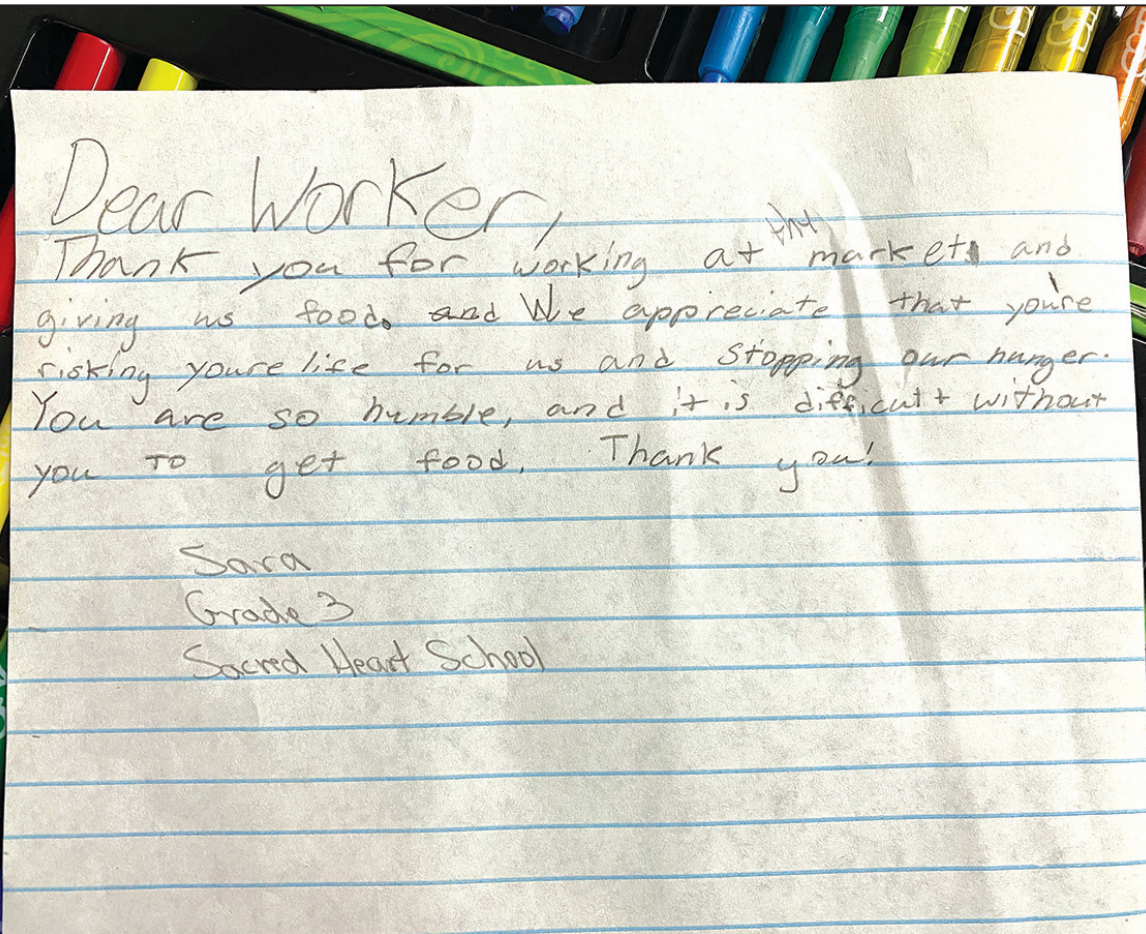 Dear Worker,
Thank you for working at the market, and
giving us food. ~~and~~ We appreciate that you're
risking youre life for us and stopping our hunger.
You are so humble, and it is difficult without
you To get food. Thank you!
Sara
Grade 3
Sacred Heart School